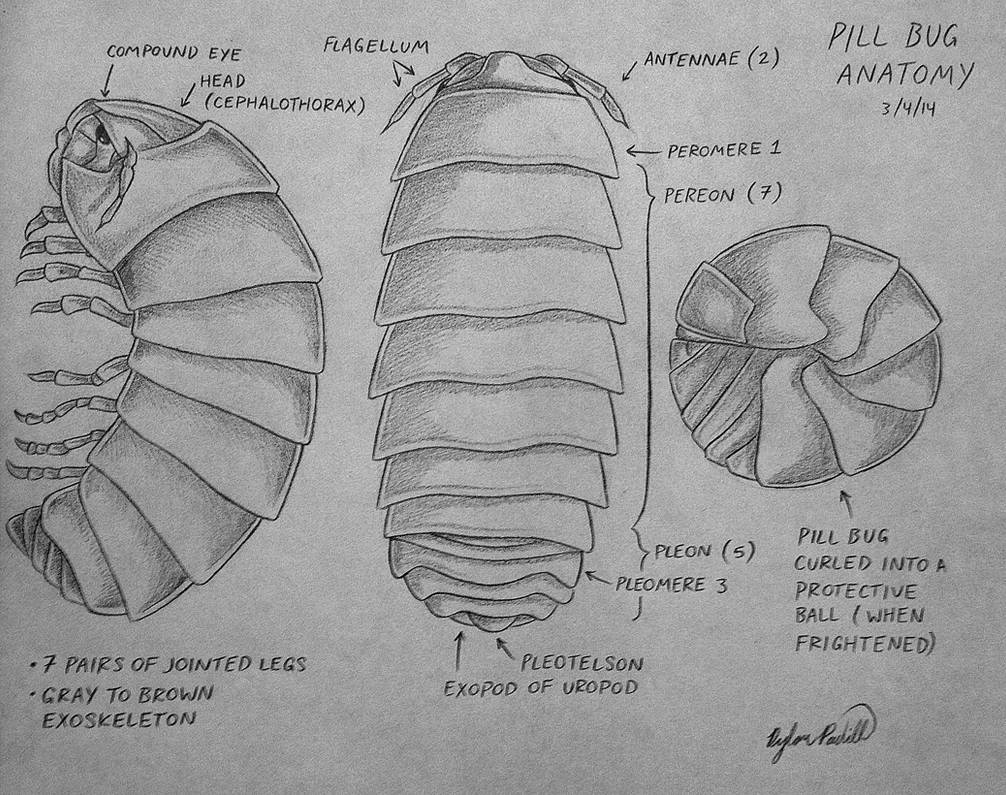 PILL BUG
ANATOMY
3/4/14
COMPOUND EYE
HEAD
(CEPHALOTHORAX)
FLAGELLUM
ANTENNAE (2)
PEROMERE 1
PEREON (7)
PLEON (5)
PLEOMERE 3
PLEOTELSON
EXOPOD OF UROPOD
PILL BUG
CURLED INTO A
PROTECTIVE
BALL (WHEN
FRIGHTENED)
• 7 PAIRS OF JOINTED LEGS
• GRAY TO BROWN
EXOSKELETON